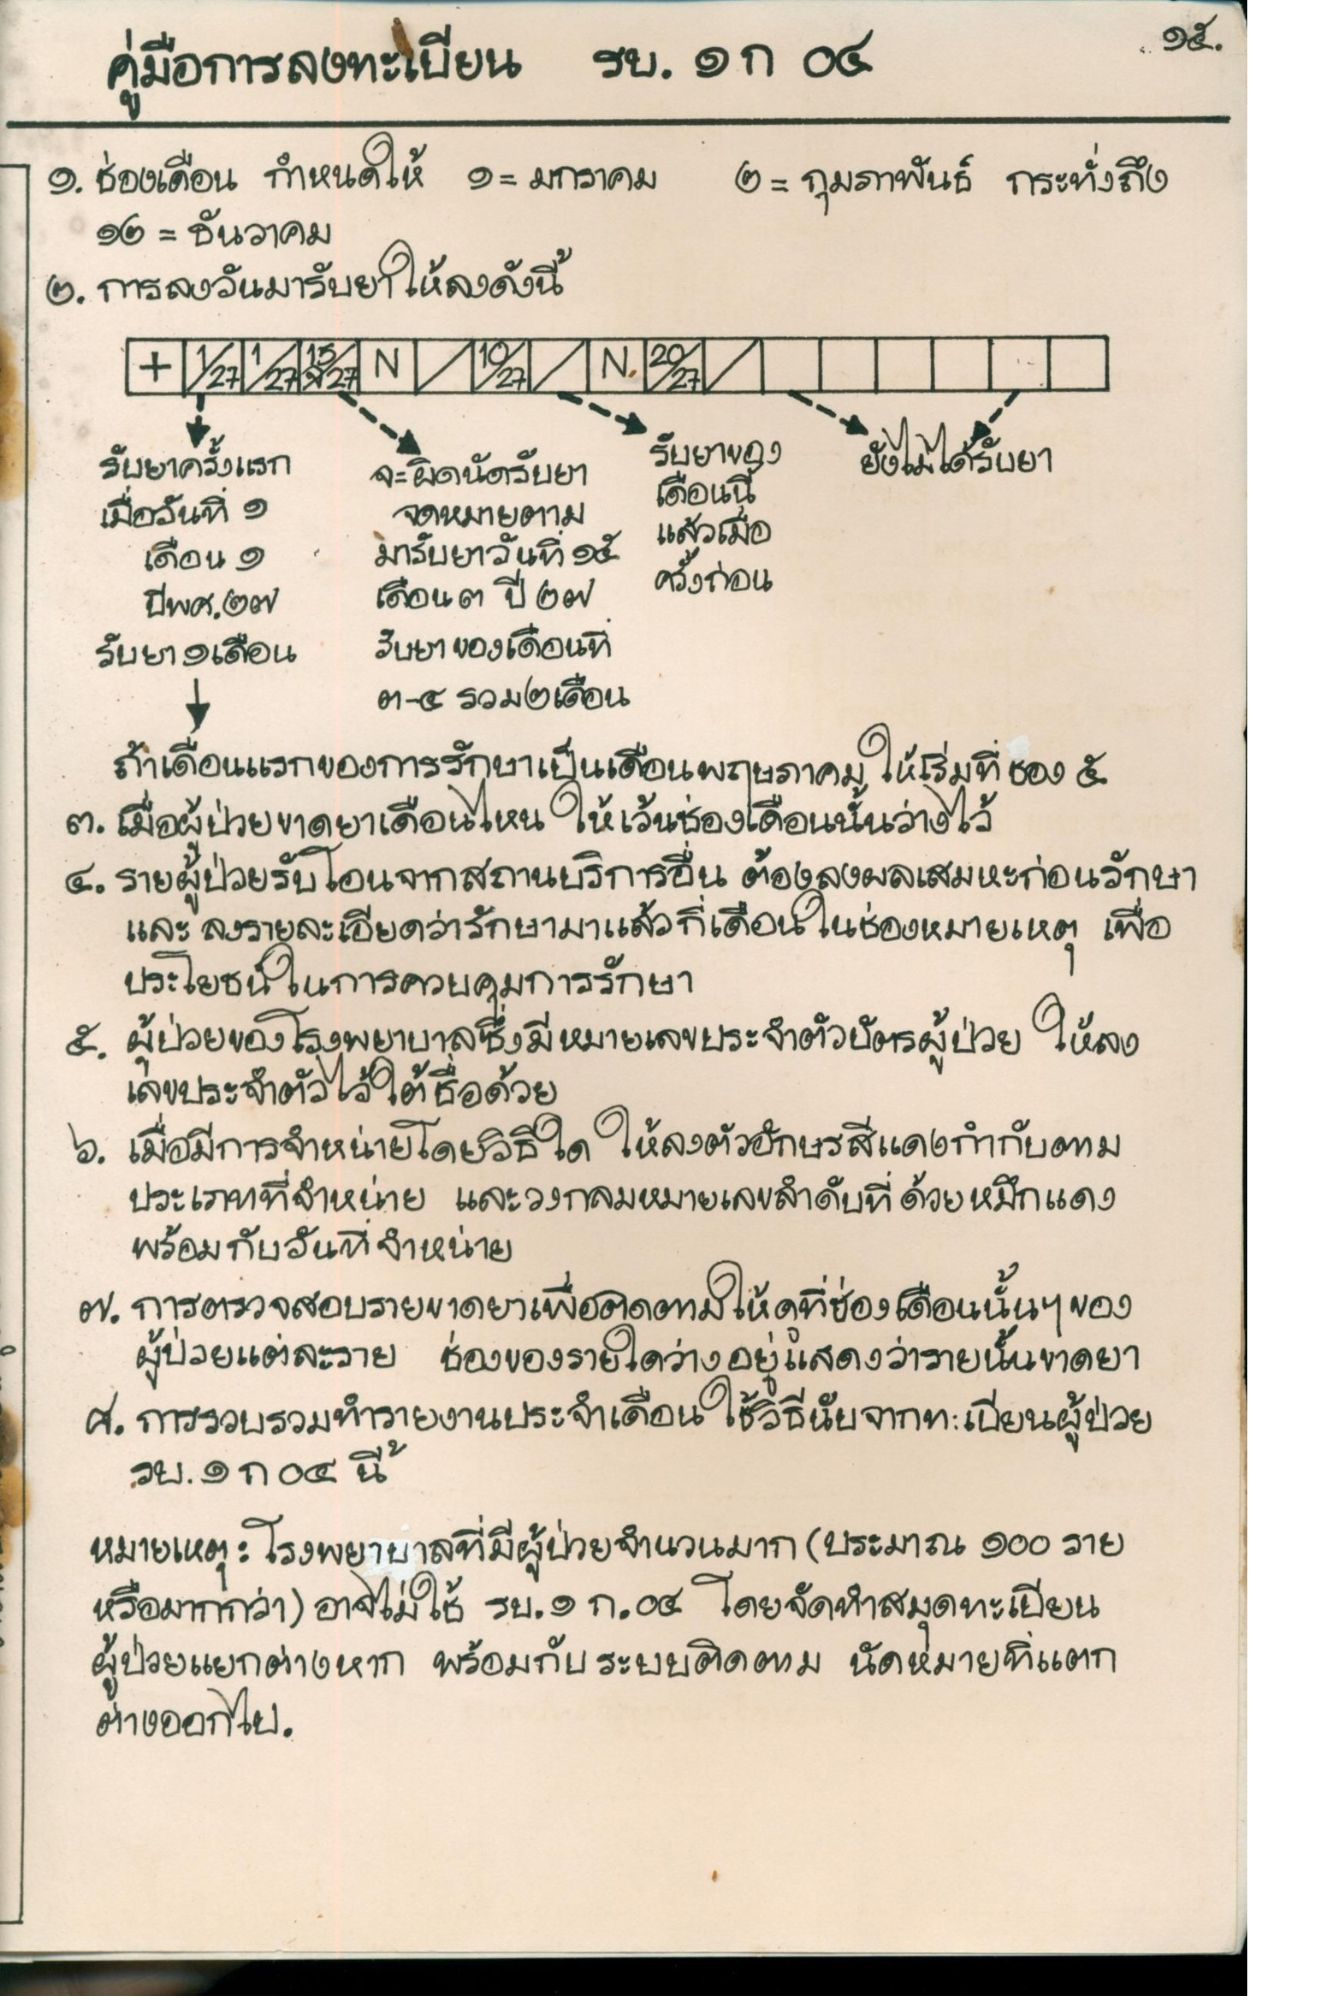 ๑๕.
คู่มือการลงทะเบียน รบ. ๑ ก ๐๔
๑. ช่องเดือน กำหนดให้ ๑ = มกราคม ๒ = กุมภาพันธ์ กระทั่งถึง
๑๒ = ธันวาคม
๒. การลงวันมารับยาให้ลงดังนี้
+ 1/27 1/27 15/27 N 10/27 N. 20/27
รับยาครั้งแรก
เมื่อวันที่ ๑
เดือน ๑
ปีพศ.๒๗
รับยา ๑เดือน
จะผิดนัดรับยา
จดหมายตาม
มารับยาวันที่ ๑๕
เดือน ๓ ปี ๒๗
รับยาของเดือนที่
๓-๔ รวม๒เดือน
รับยาของ
เดือนนี้
แล้วเมื่อ
ครั้งก่อน
ยังไม่ได้รับยา
ถ้าเดือนแรกของการรักษาเป็นเดือนพฤษภาคม ให้เริ่มที่ ช่อง ๕
๓. เมื่อผู้ป่วยขาดยาเดือนไหน ให้เว้นช่องเดือนนั้นว่างไว้
๔. รายผู้ป่วยรับโอนจากสถานบริการอื่น ต้องลงผลเสมหะก่อนรักษา
และ ลงรายละเอียดว่ารักษามาแล้วกี่เดือนในช่องหมายเหตุ เพื่อ
ประโยชน์ในการควบคุมการรักษา
๕. ผู้ป่วยของโรงพยาบาลซึ่งมีหมายเลขประจำตัวบัตรผู้ป่วย ให้ลง
เลขประจำตัวไว้ใต้ชื่อด้วย
๖. เมื่อมีการจำหน่ายโดยวิธีใด ให้ลงตัวอักษรสีแดงกำกับตาม
ประเภทที่จำหน่าย และวงกลมหมายเลขลำดับที่ ด้วยหมึกแดง
พร้อมกับวันที่จำหน่าย
๗. การตรวจสอบรายขาดยาเพื่อติดตามให้ดูที่ช่องเดือนนั้นๆ ของ
ผู้ป่วยแต่ละราย ช่องของรายใดว่างอยู่แสดงว่ารายนั้นขาดยา
๘. การรวบรวมทำรายงานประจำเดือน ใช้วิธีนับจากทะเบียนผู้ป่วย
รบ. ๑ ก ๐๔ นี้
หมายเหตุ : โรงพยาบาลที่มีผู้ป่วยจำนวนมาก (ประมาณ ๑๐๐ ราย
หรือมากกว่า) อาจไม่ใช้ รบ. ๑ ก. ๐๔ โดยจัดทำสมุดทะเบียน
ผู้ป่วยแยกต่างหาก พร้อมกับ ระบบติดตาม นัดหมายที่แตก
ต่างออกไป.